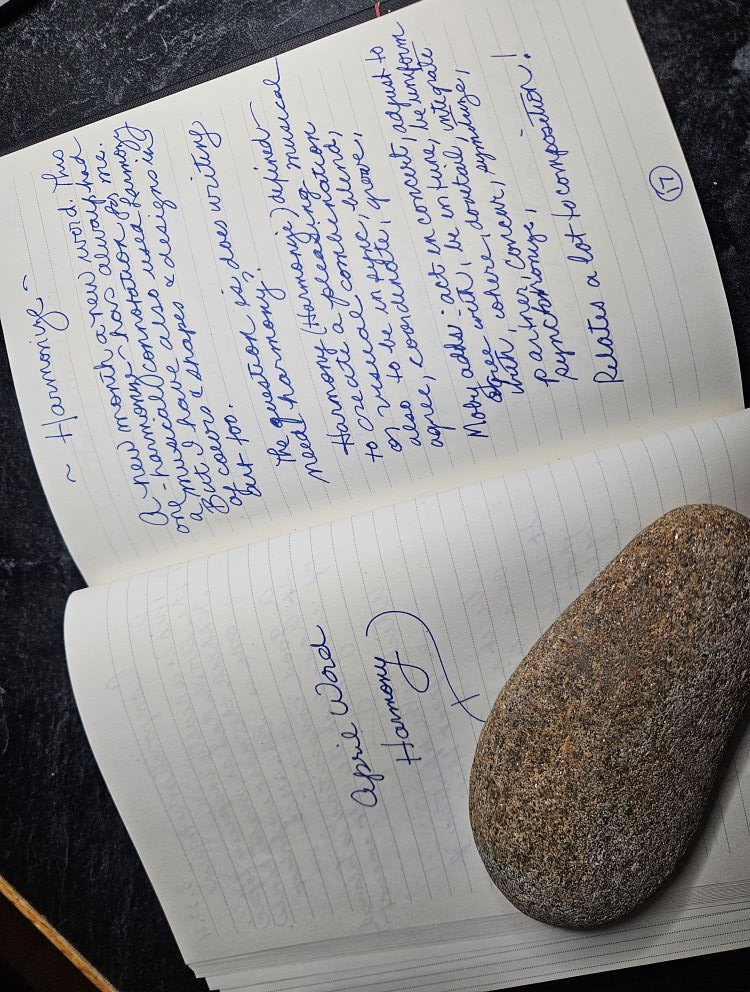 April Word
Harmony
~ Harmonize ~
A new month a new word. This
one - harmonize has always had
a musical connotation for me.
But I have also used harmony
of colors & shapes & designs in
art too.
The question is, does writing
need harmony?
Harmony (Harmonize) defined -
to create a pleasing musical
or visual combination,
also to be in sync, blend,
agree, coordinate, groove,
Moby adds - act in concert, adjust to
agree with, be in tune, be uniform
with, cohere, dovetail, integrate
partner, concur, symbolize,
synchronize,
Relates a lot to composition!
17